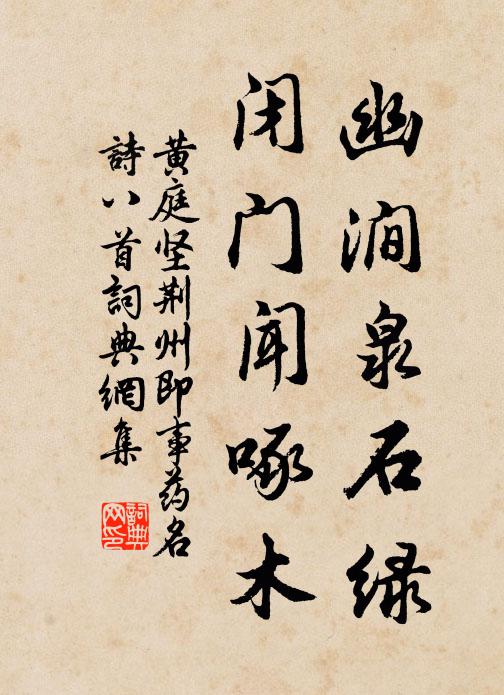 幽澗泉石绿
闭门闻啄木
黄庭坚荆州即事药名
詩八首詞典網集
詞典网印